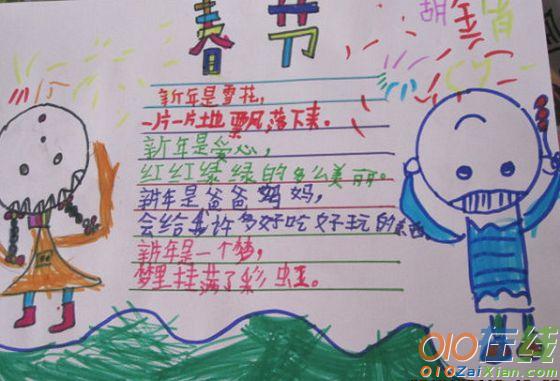 春节
胡金肖
新年是雪花，
一片一片地飘落下来。
新年是爱心，
红红绿绿的多么美丽。
新年是爸爸妈妈，
会给我许多好吃好玩的东西
新年是一个梦，
梦里挂满了彩虹。
010在线
010ZaiXian.com